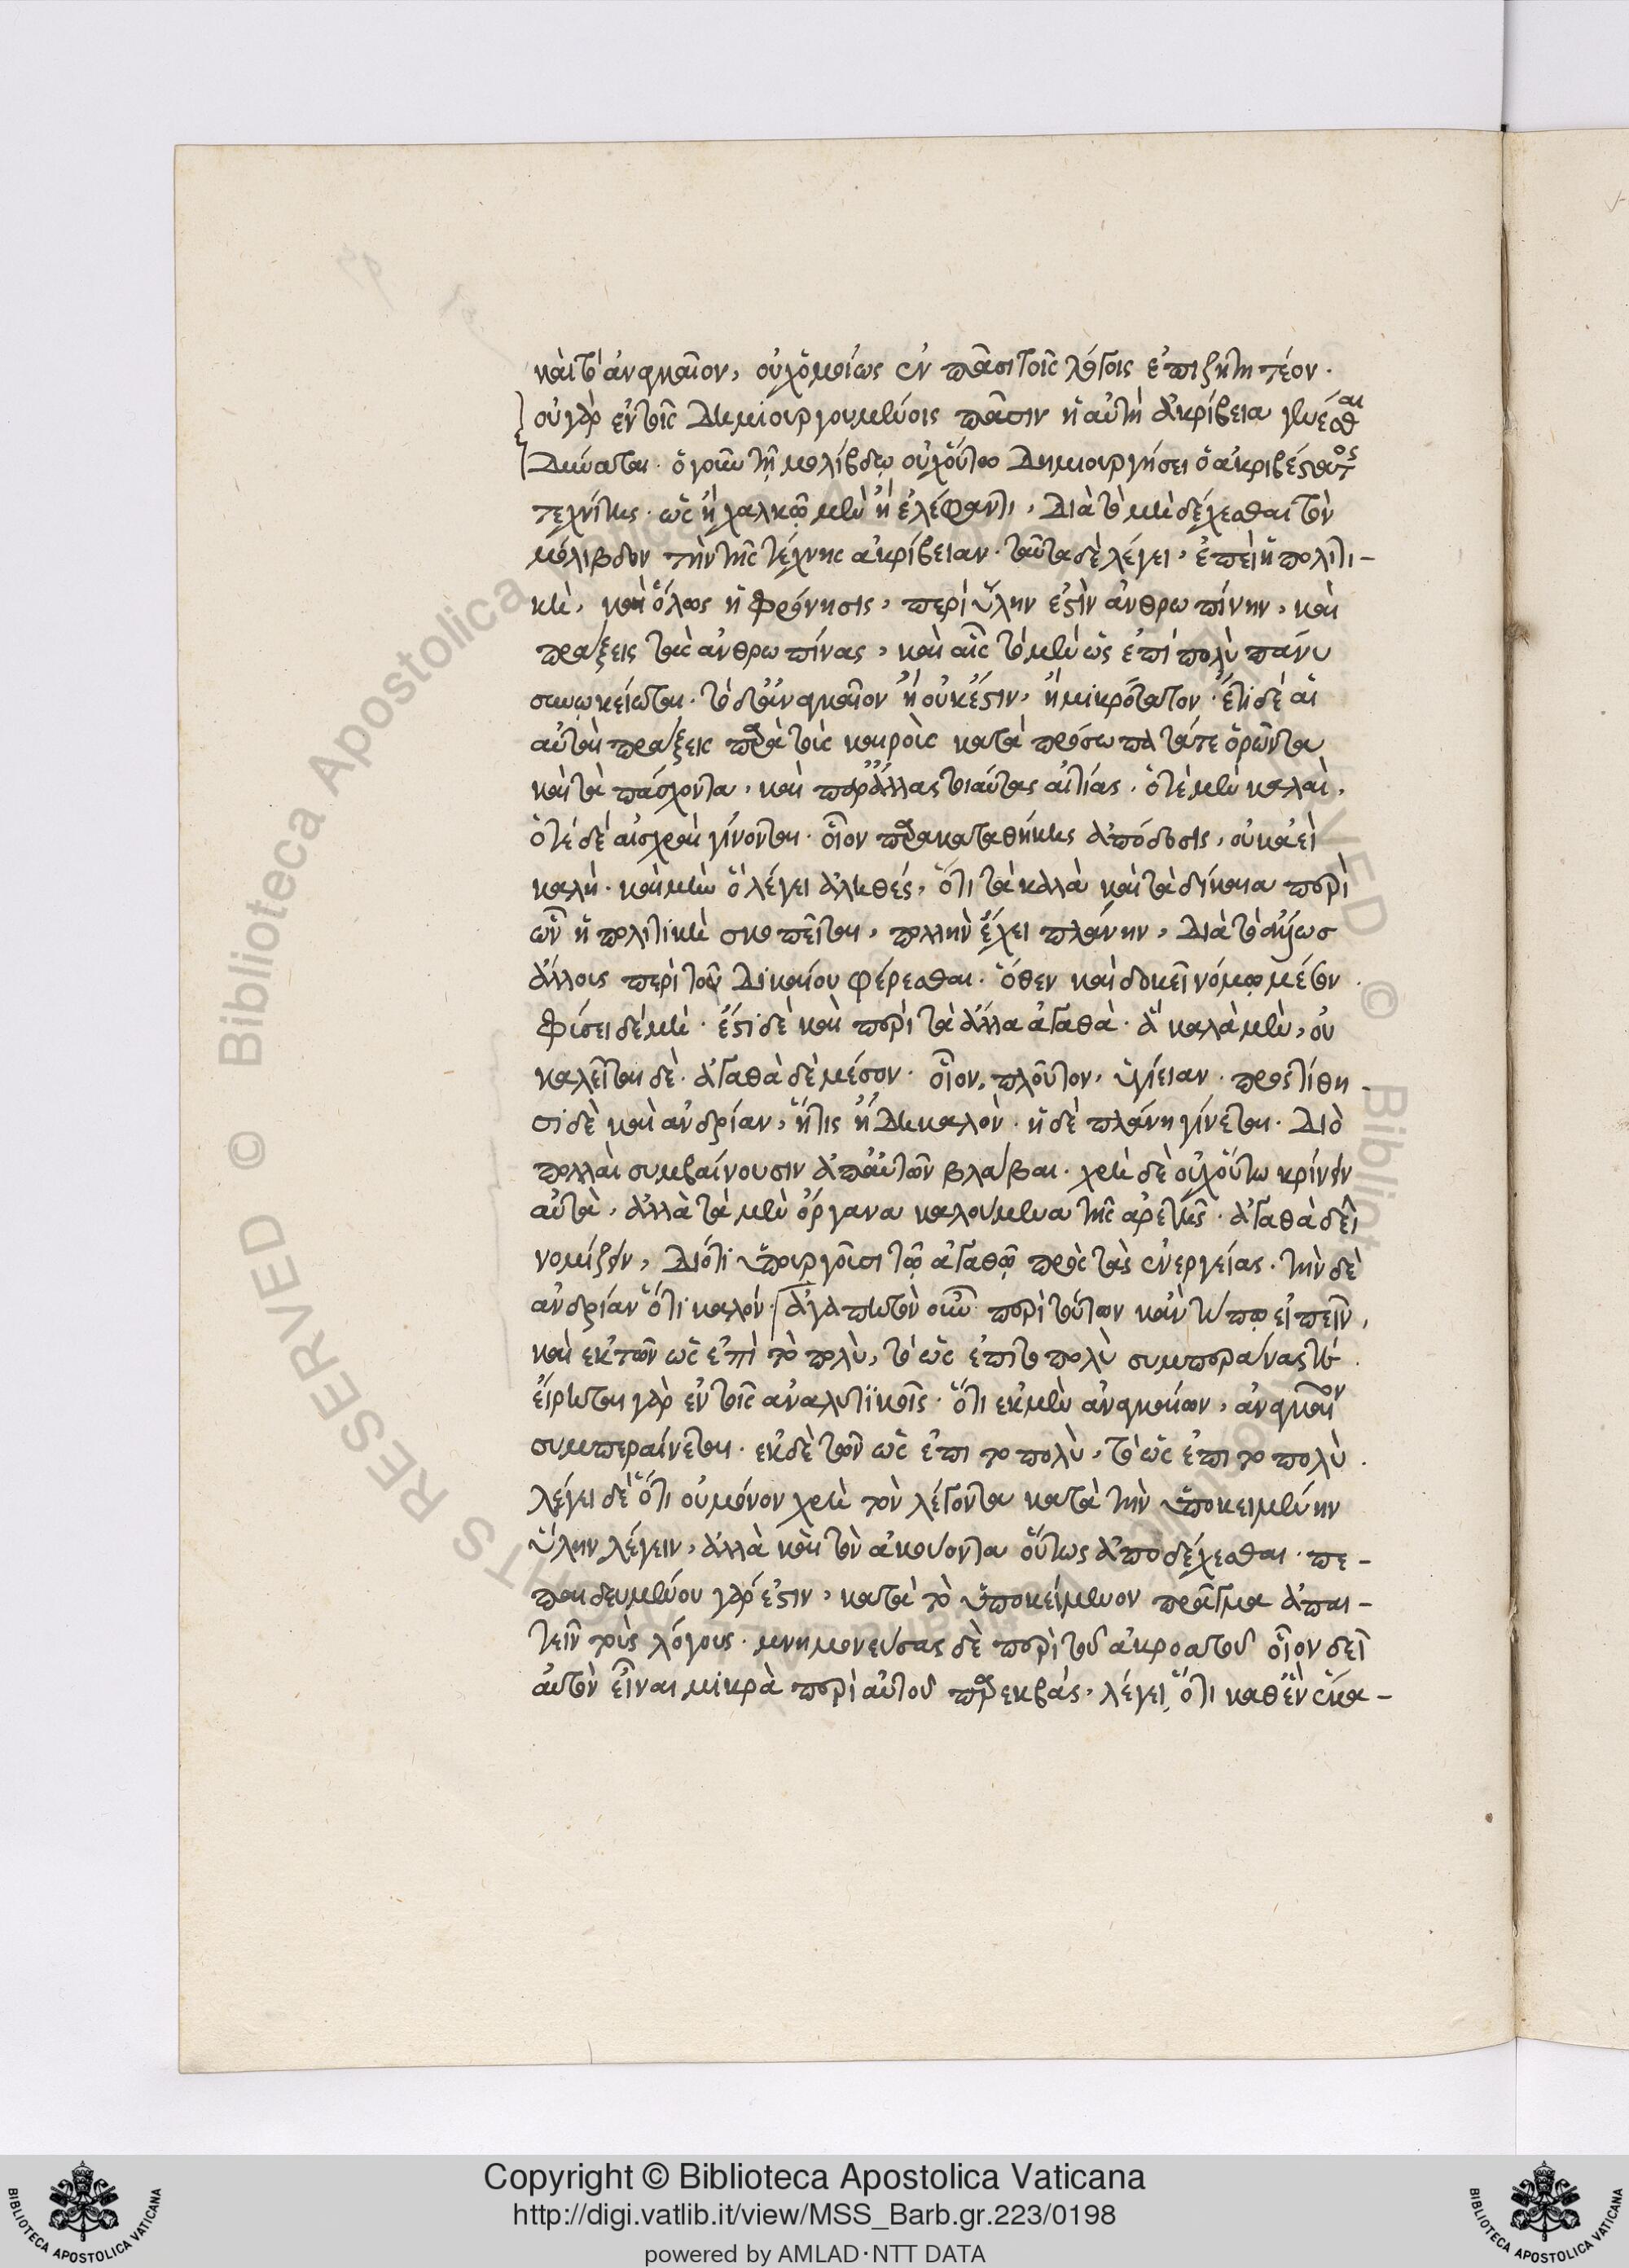 καὶ τὸ ἀναγκαῖον, οὐχ ὁμοίως ἐν πᾶσι τοῖς λόγοις ἐπιζητητέον.
οὐ γὰρ ἐν τοῖς δημιουργουμένοις πᾶσιν ἡ αὐτὴ ἀκρίβεια γενέσθαι
δύναται. ὁ γοῦν τῇ μολίβδῳ οὐχ οὕτω δημιουργήσει ὁ ἀκριβέστατος
τεχνίτης. ὡς ἢ χαλκῷ μὲν ἢ ἐλέφαντι, διὰ τὸ μὴ δέχεσθαι τὸν
μόλιβδον τὴν τῆς τέχνης ἀκρίβειαν. ταῦτα δὲ λέγει, ἐπεὶ ἡ πολιτι-
κὴ, καὶ ὅλως ἡ φρόνησις, περὶ ὕλην ἐστὶν ἀνθρωπίνην, καὶ
πράξεις τὰς ἀνθρωπίνας, καὶ αἷς τὸ μὲν ὡς ἐπὶ πολὺ πάνυ
συνῳκείωται. τὸ δ' ἀναγκαῖον ἢ οὐκ ἔστιν, ἢ μικρότατον. ἔτι δὲ αἱ
αὐταὶ πράξεις παρὰ τοῖς καιροῖς κατὰ πρόσωπα τά τε δρῶντα
καὶ τὰ πάσχοντα, καὶ παρ' ἄλλας τοιαύτας αἰτίας. ὁτὲ μὲν καλαὶ,
ὁτὲ δὲ αἰσχραὶ γίνονται. οἷον παρακαταθήκης ἀπόδοσις, οὐκ ἀεὶ
καλή. καὶ μὴν ὃ λέγει ἀληθές, ὅτι τὰ καλὰ καὶ τὰ δίκαια περὶ
ὧν ἡ πολιτικὴ σκοπεῖται, πολλὴν ἔχει πλάνην, διὰ τὸ
ἄλλοις περὶ τοῦ δικαίου φέρεσθαι. ὅθεν καὶ δοκεῖ νόμῳ μέτον
φύσει δὲ μή. ἔστι δὲ καὶ περὶ τὰ ἄλλα ἀγαθὰ. ἃ καλὰ μὲν, οὐ
καλεῖται δὲ. ἀγαθὰ δὲ μέσον. οἷον, πλοῦτον, ὑγίειαν. προστίθη-
σι δὲ καὶ ἀνδρίαν, ἥτις ἤδη καλὸν. ἡ δὲ πλάνη γίνεται. διὸ
πολλαὶ συμβαίνουσιν ἀπ' αὐτῶν βλάβαι. χρὴ δὲ οὐχ οὕτω κρίνειν
αὐτὰ, ἀλλὰ τὰ μὲν ὄργανα καλούμενα τῆς ἀρετῆς. ἀγαθὰ δεῖ
νομίζειν, διότι ὑπουργοῦσι τῷ ἀγαθῷ πρὸς τὰς ἐνεργείας. τὴν δὲ
ἀνδρίαν ὅτι καλόν. ἀγαπητὸν οὖν περὶ τούτων κἀν τύπῳ εἰπεῖν,
καὶ ἐκ τῶν ὡς ἐπὶ τὸ πολὺ, τὸ ὡς ἐπὶ τὸ πολὺ συμπεράνασθαι.
εἴρηται γὰρ ἐν τοῖς ἀναλυτικοῖς. ὅτι ἐκ μὲν ἀναγκαίων, ἀναγκαῖον
συμπεραίνεται. ἐκ δὲ τῶν ὡς ἐπὶ τὸ πολὺ, τὸ ὡς ἐπὶ τὸ πολὺ.
λέγει δὲ ὅτι οὐ μόνον χρὴ τὸν λέγοντα κατὰ τὴν ὑποκειμένην
ὕλην λέγειν, ἀλλὰ καὶ τὸν ἀκούοντα οὕτως ἀποδέχεσθαι. πε-
παιδευμένου γάρ ἐστιν, κατὰ τὸ ὑποκείμενον πρᾶγμα ἀπαι-
τεῖν τοὺς λόγους. μνημονεύσας δὲ περὶ τοῦ ἀκροατοῦ οἷον δεῖ
αὐτὸν εἶναι μικρὰ περὶ αὐτοῦ παρεκβάς, λέγει, ὅτι καθ' ἓν ἕκα-
Copyright © Biblioteca Apostolica Vaticana
http://digi.vatlib.it/view/MSS_Barb.gr.223/0198
powered by AMLAD·NTT DATA